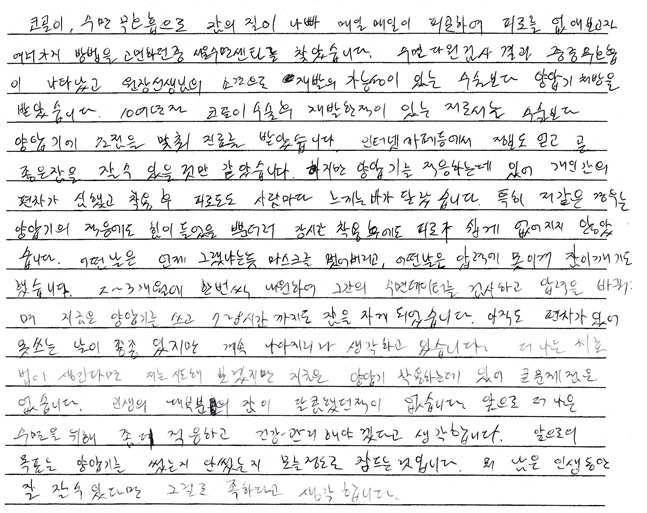 코골이, 수면 무호흡으로 잠의 질이 나빠 매일매일이 피곤하여 피로를 없애보고자
여러가지 방법을 고민하던중 서울수면센터를 찾았습니다. 수면다원검사 결과 중증무호흡
이 나타났고 원장선생님의 소견으로 재발의 가능성이 있는 수술보다 양압기 처방을
받았습니다. 10여년전 코골이수술의 재발한적이 있는 저로서는 수술보다
양압기에 초점을 맞춰 진료를 받았습니다. 인터넷 까페등에서 정보도 얻고 곧
좋은잠을 잘수 있을것만 같았습니다. 하지만 양압기는 적응하는데 있어 개인간의
편차가 심했고 착용 후 피로도도 사람마다 느끼는바가 달랐습니다. 특히 저같은 경우는
양압기의 적응에도 힘이 들었을 뿐더러 장시간 착용 후에도 피로가 쉽게 없어지지 않았
습니다. 어떤날은 언제 그랬냐는듯 마스크를 벗어버리고, 어떤날은 압력에 못이겨 잠이깨기도
했습니다. 2~3개월에 한번씩 내원하여 그간의 수면데이터를 검사하고 압력을 바꿔가
며 지금은 양압기를 쓰고 7~8시간까지도 잠을 자게 되었습니다. 아직도 편차가 있어
못쓰는 날이 종종 있지만 계속 나아지리라 생각하고 있습니다. 더 나은 치료
법이 생긴다면 저는 시도해 보겠지만 지금은 양압기 착용하는데 있어 큰문제점은
없습니다. 인생의 대부분의 잠이 달콤했던적이 없습니다. 앞으로 더 나은
수면을 위해 좀더 적응하고 건강관리 해야겠다고 생각합니다. 앞으로의
목표는 양압기를 썼는지 안썼는지 모를정도로 잠드는것입니다. 뭐 남은 인생동안
잘 잘수있다면 그걸로 족하다고 생각합니다.